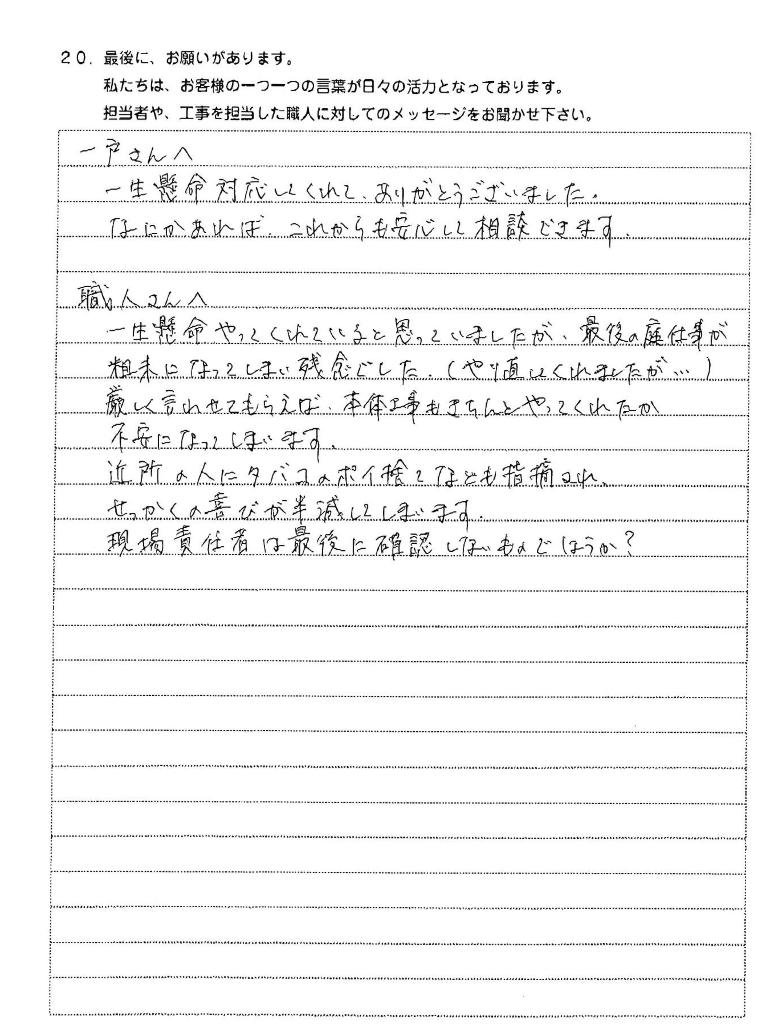 20．最後に、お願いがあります。
私たちは、お客様の一つ一つの言葉が日々の活力となっております。
担当者や、工事を担当した職人に対してのメッセージをお聞かせ下さい。
一戸さんへ
一生懸命対応してくれて、ありがとうございました。
なにかあれば、これからも安心して相談できます。
職人さんへ
一生懸命やってくれていると思っていましたが、最後の庭仕事が
粗末になってしまい残念でした。(やり直してくれましたが…)
厳しく言わせてもらえば、本体工事もきちんとやってくれたか
不安になってしまいます。
近所の人にタバコのポイ捨てなども指摘され、
せっかくの喜びが半減してしまいます。
現場責任者は最後に確認しないものでしょうか?